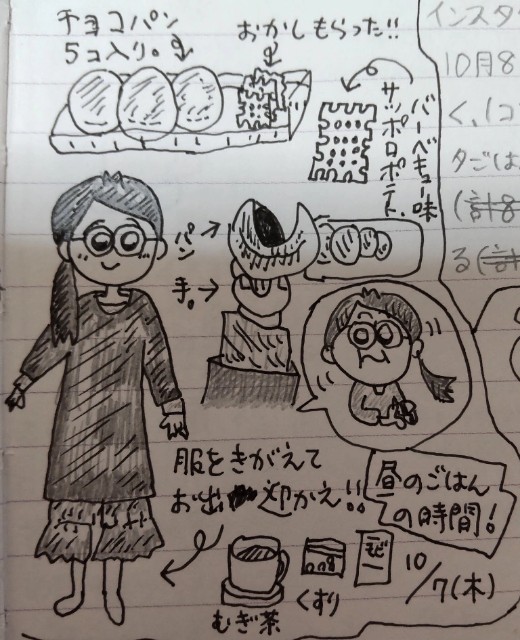 チョコパン
5コ入り。
おかしもらった!!
バーベキュー味
サッポロポテト、
パン
手。
服をきがえて
お出迎かえ!!
昼のごはん
の時間!
むぎ茶
くすり
10/7(木)
インスタ
10月8
く、1コ
タごは
(計8
る(計